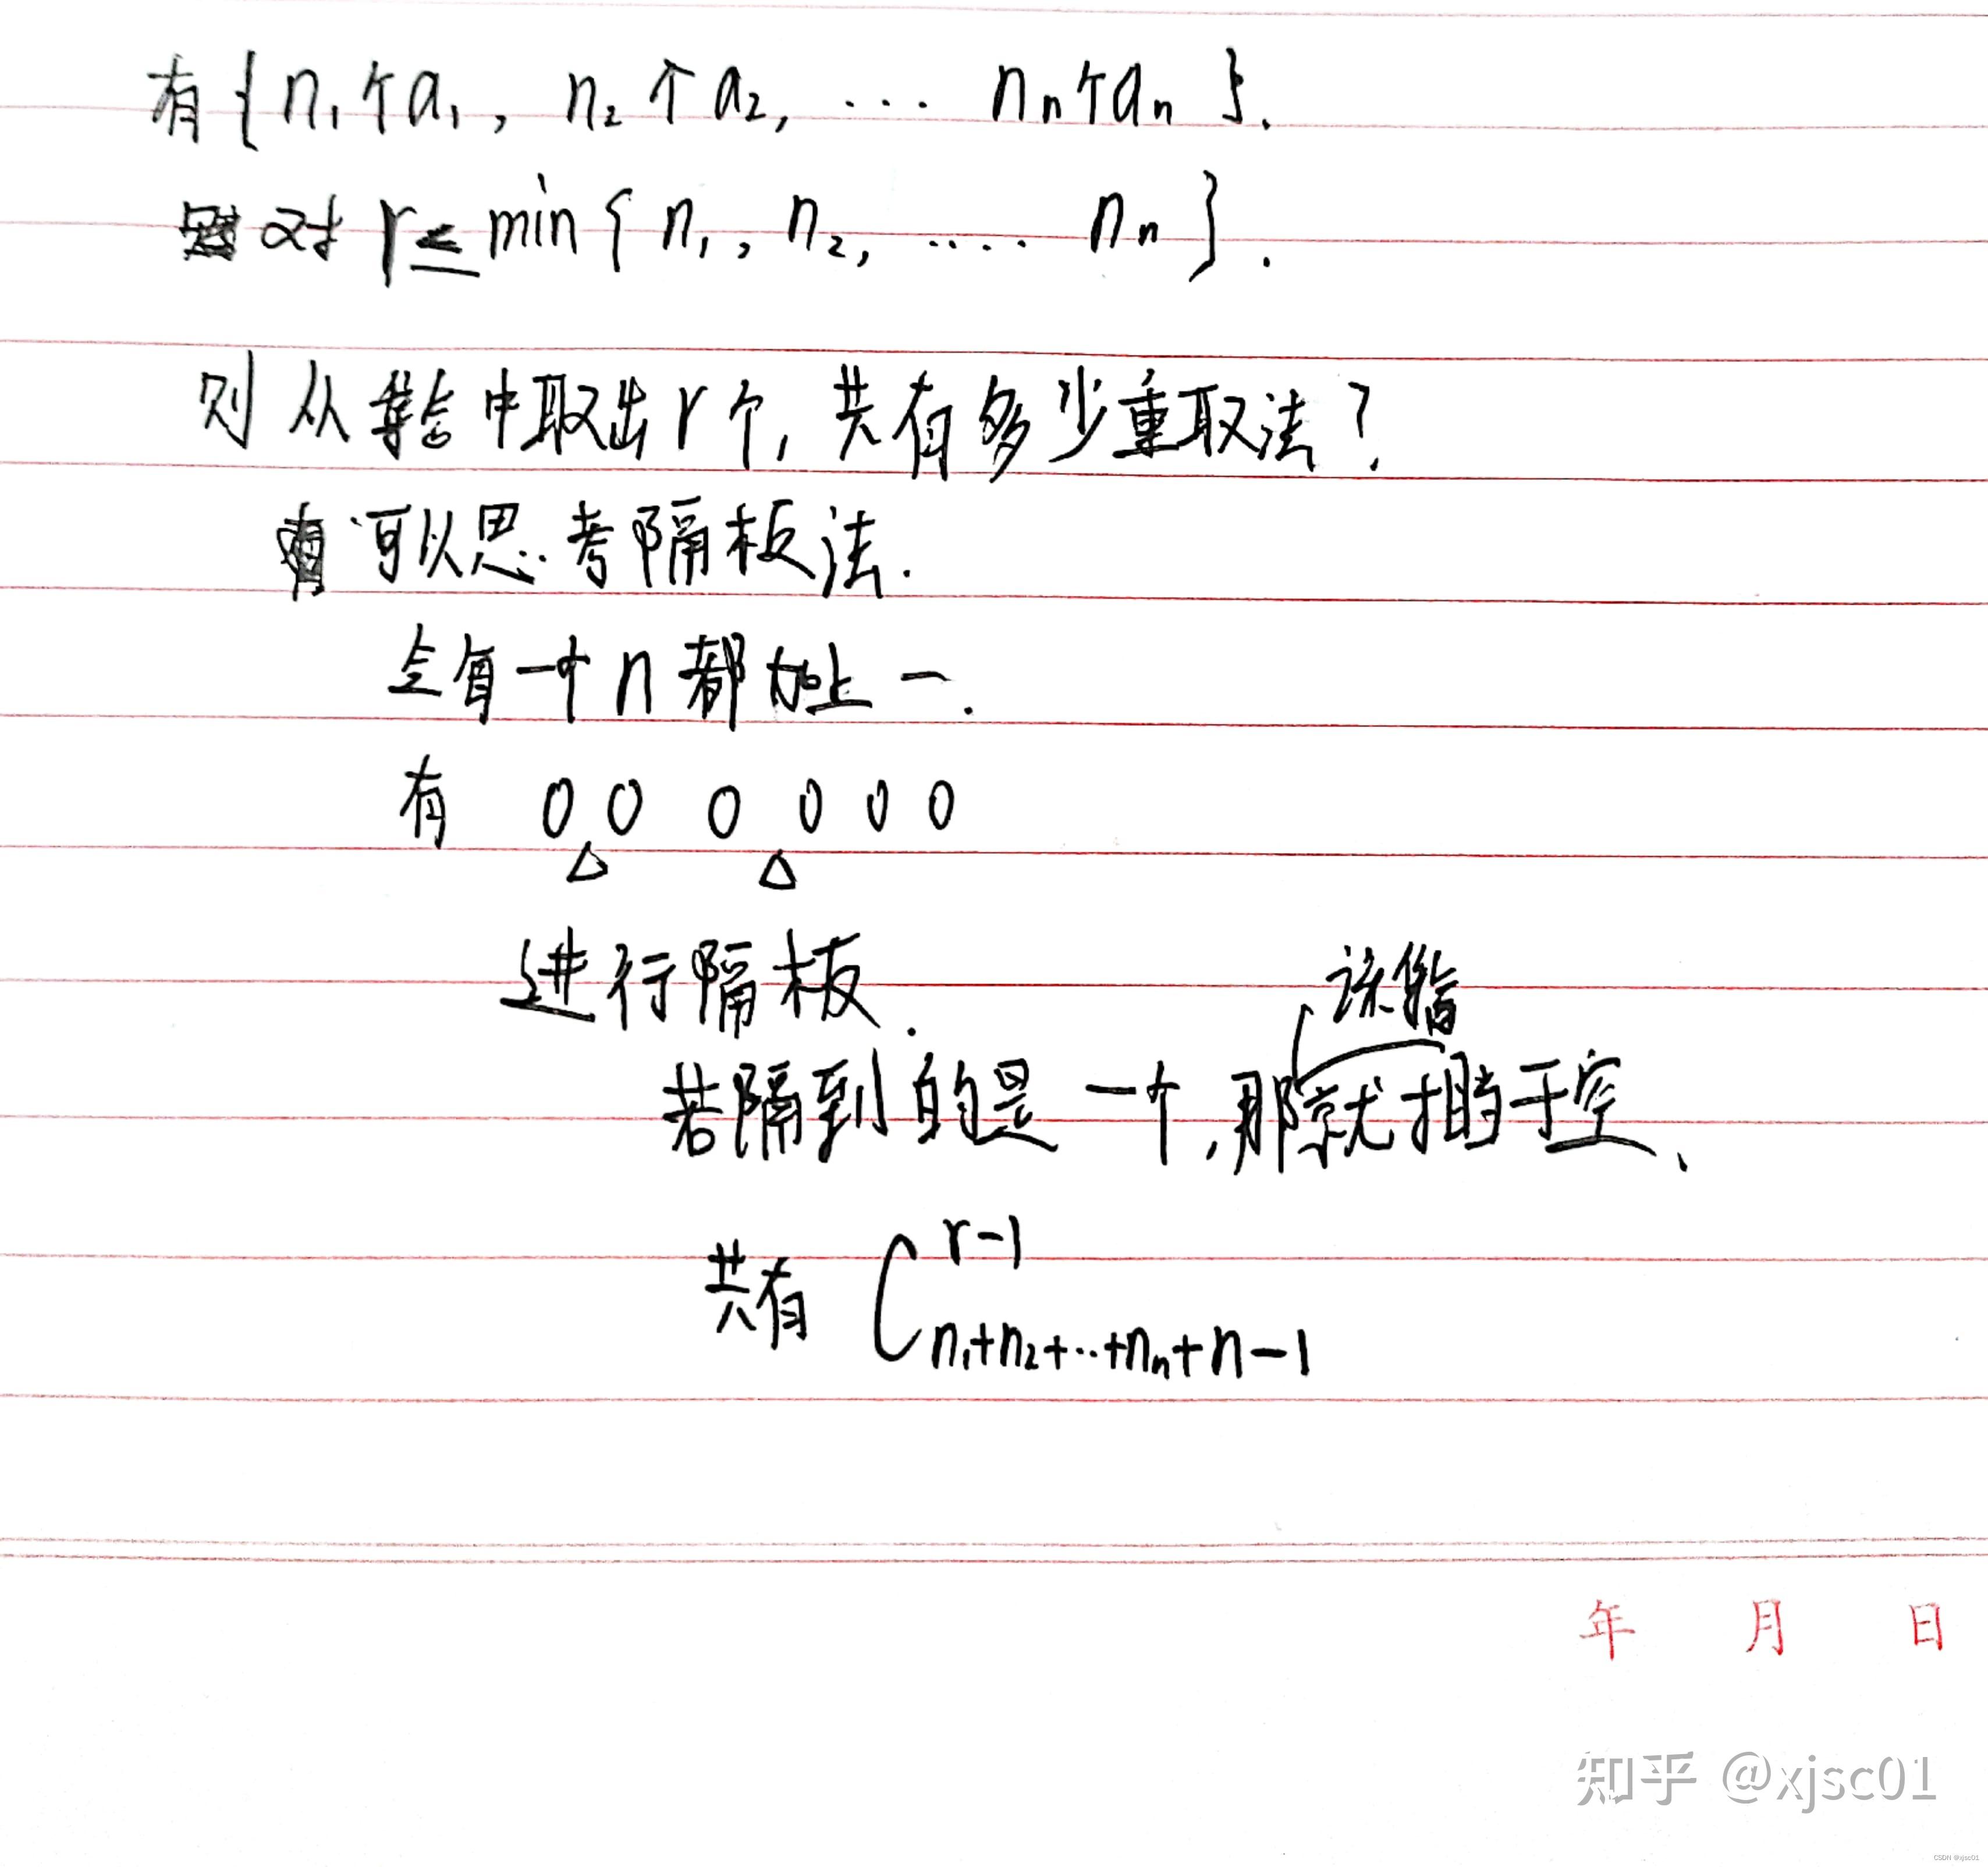 有{n₁个a₁, n₂个a₂, ... nₙ个aₙ}.
对 r ≤ min{n₁, n₂, .... nₙ}.
则从集合中取出r个,共有多少重取法?
可以思考隔板法.
会有一个n都加上一.
有 0 0 0 0 0 0
△ △
进行隔板.
该
若隔到的是一个,那就相当于空、
共有 C^{r-1}_{n₁+n₂+...+nₙ+n-1}
年 月 日
知乎 @xjsc01
CSDN @xjsc01